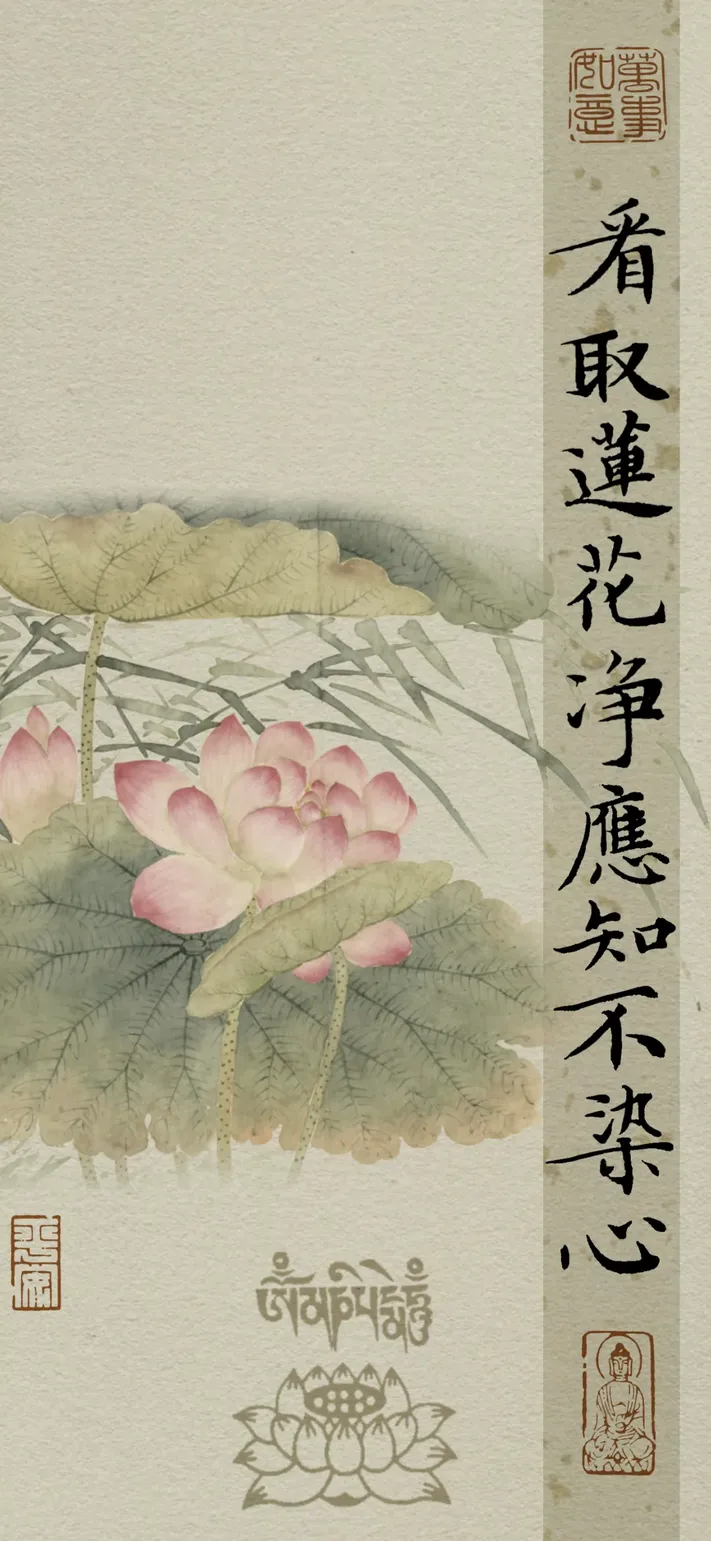 萬事如意
看取蓮花净應知不染心
平安
ༀམཎིཔདྨེཧཱུྃ